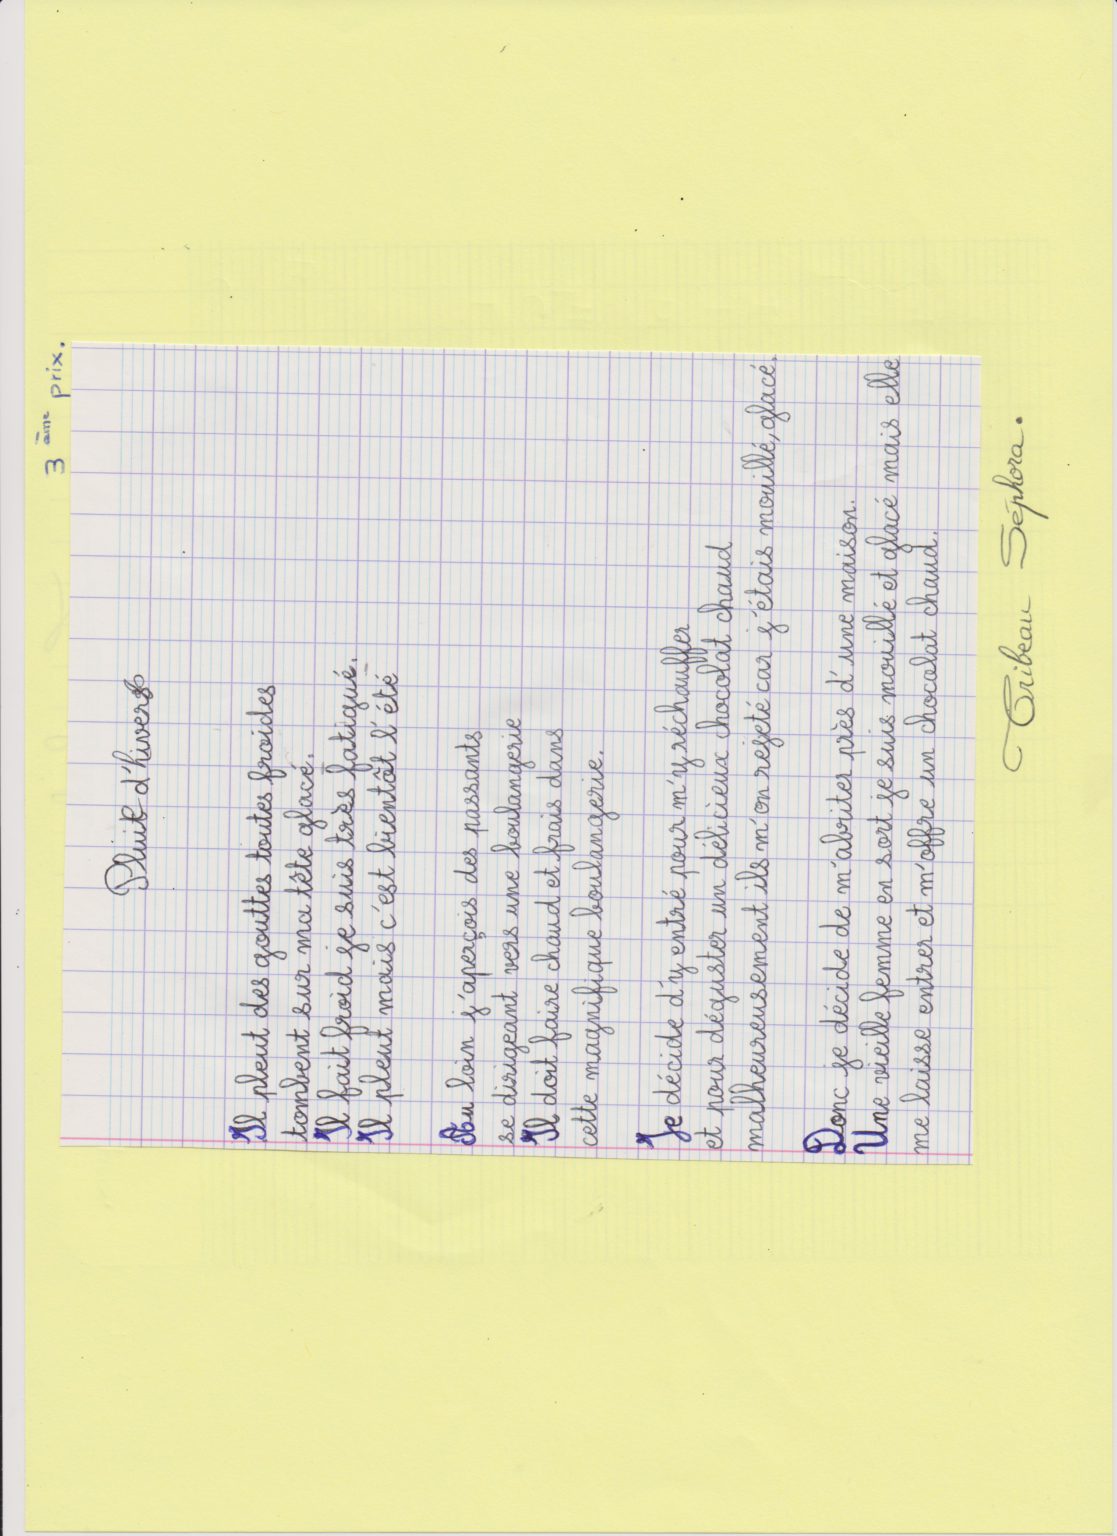 3ème prix.
Pluie d'hivers
Il pleut des gouttes toutes froides
tombent sur ma tête glacé.
Il fait froid je suis très fatiqué.
Il pleut mais c'est bientôt l'été
Au loin j'aperçois des passants
se dirigeant vers une boulangerie
Il doit faire chaud et frais dans
cette magnifique boulangerie.
Je décide d'y entré pour m'y réchauffer
et pour déguster un délicieux chocolat chaud
malheureusement ils m'on rejeté car j'étais mouillé, glacé.
Donc je décide de m'abriter près d'une maison.
Une vieille femme en sort je suis mouillé et glacé mais elle
me laisse entrer et m'offre un chocalat chaud.
Cribeau Séphora.